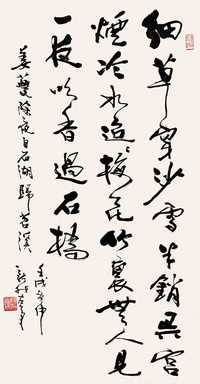 細草穿沙雪半銷吳宮
煙冷水迢迢梅花竹裏無人見
一夜吹香過石橋
姜夔除夜自石湖歸苕溪
壬戌